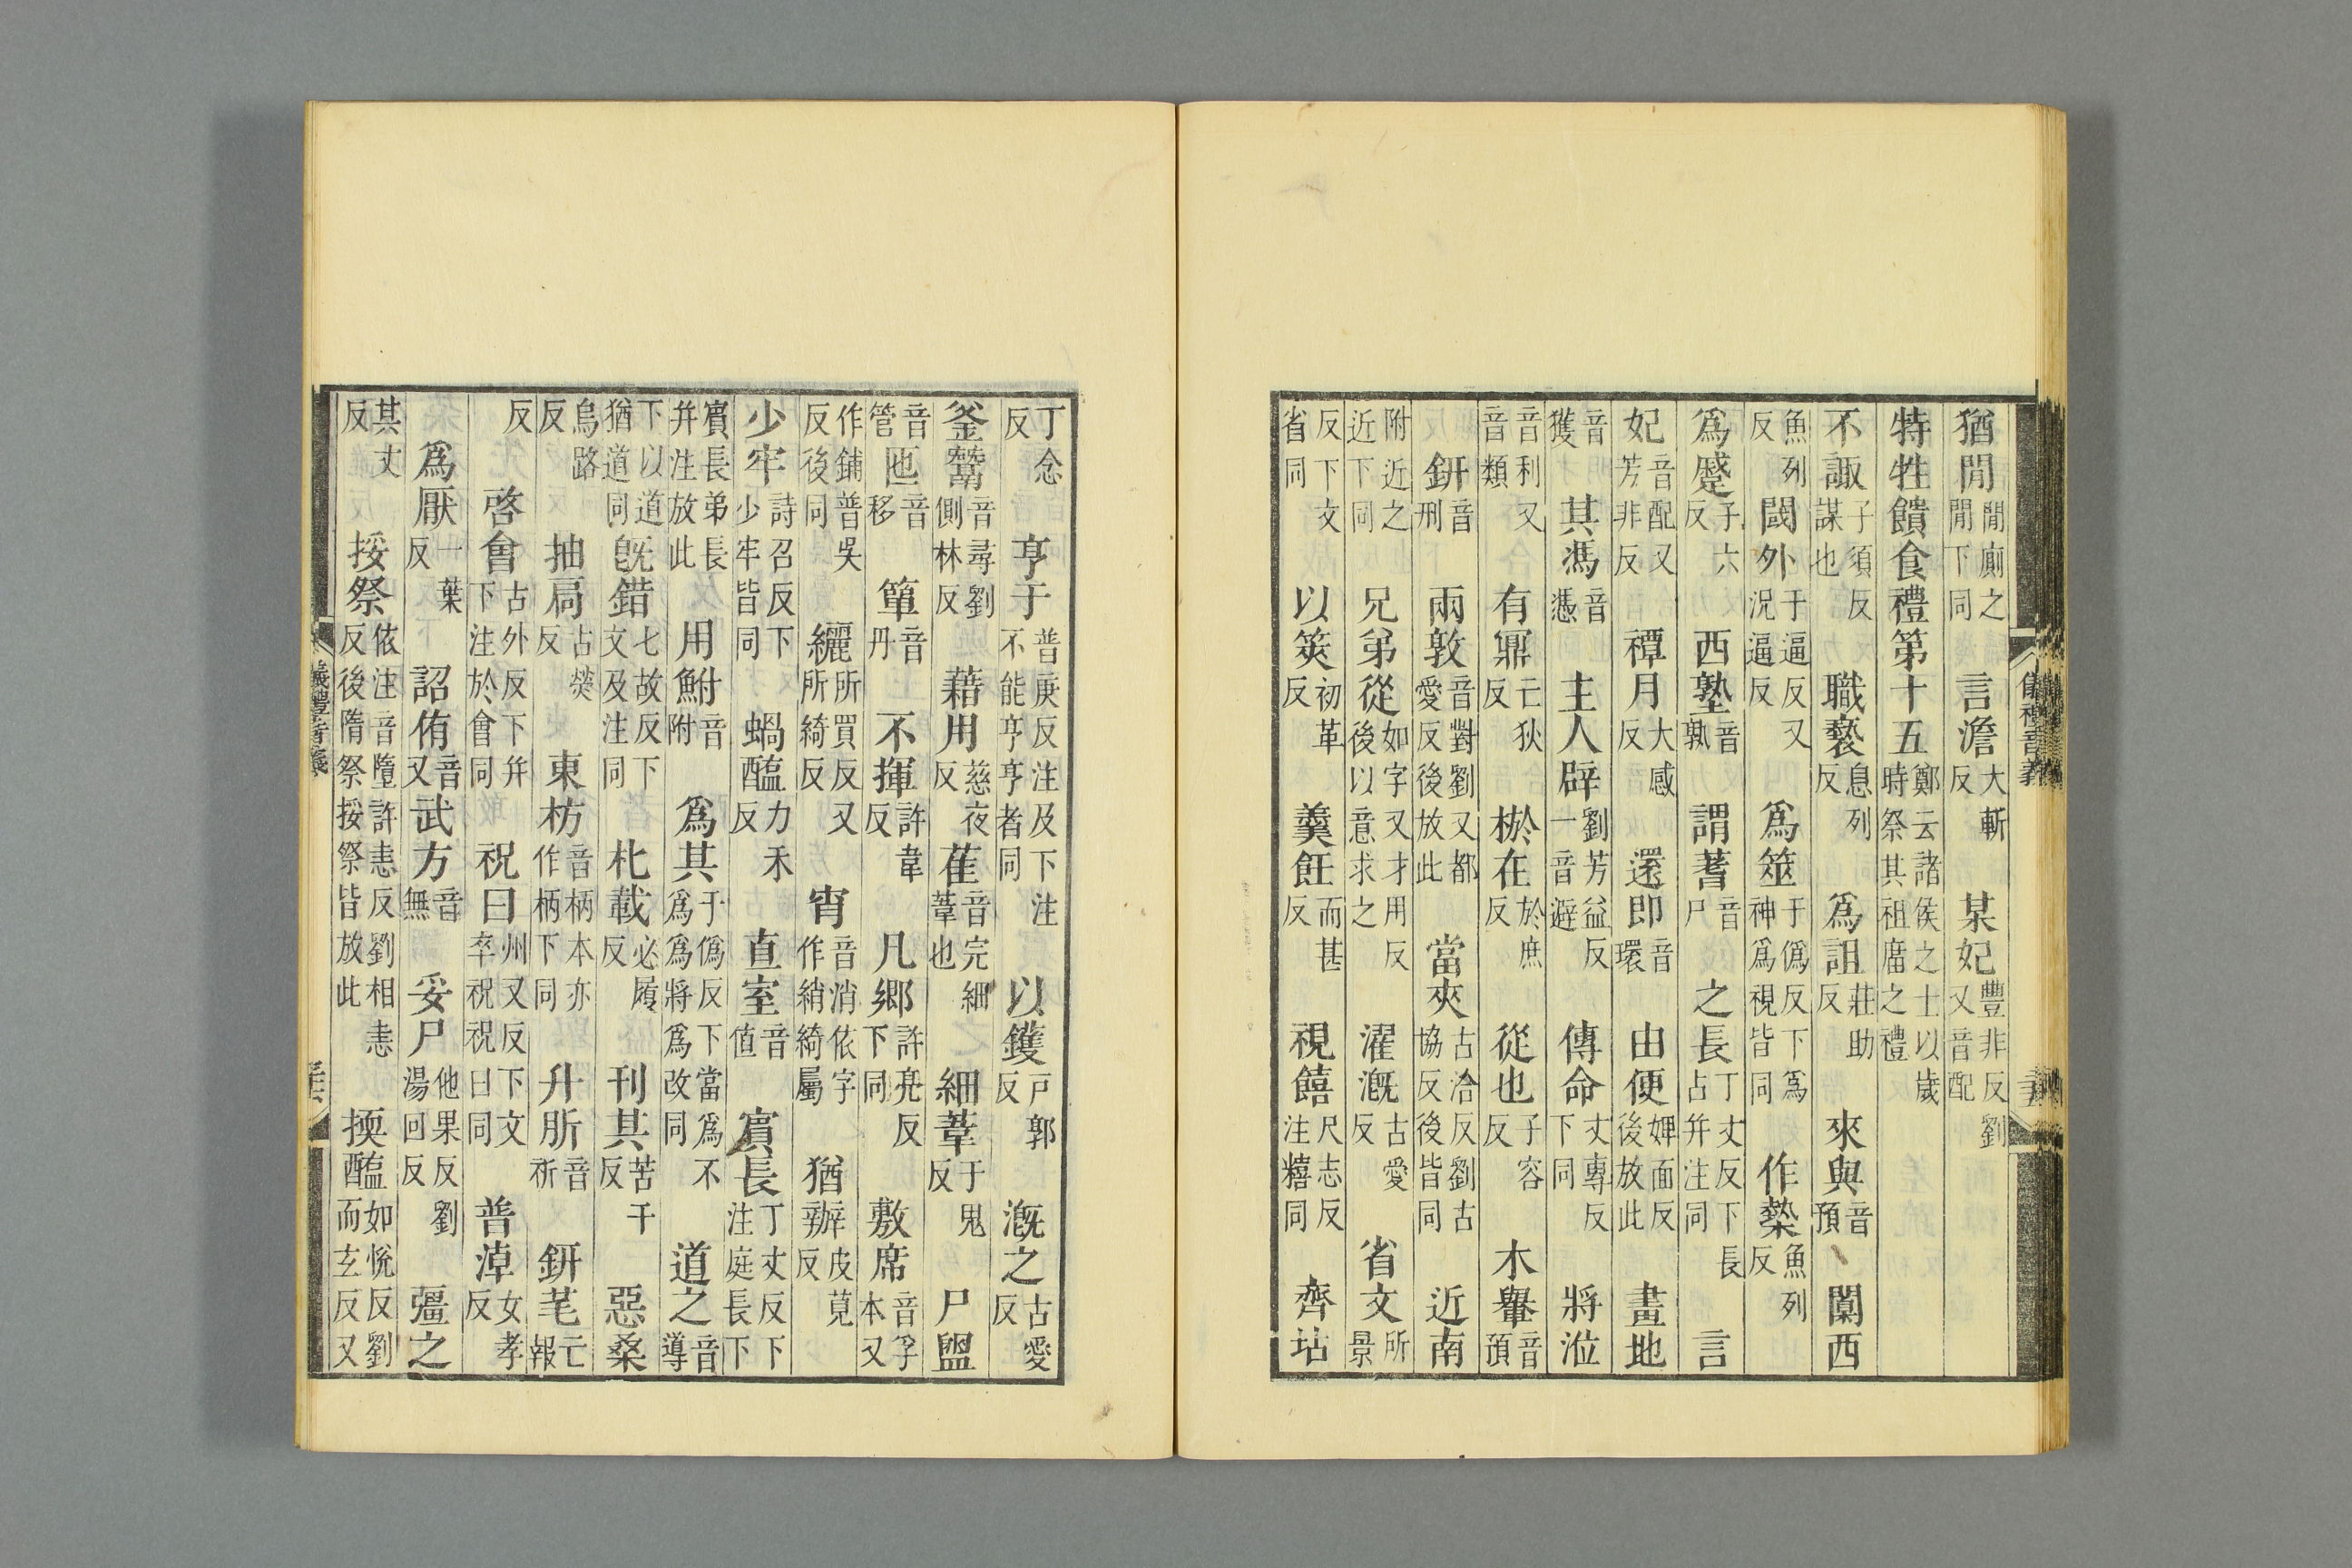 猶閒閒廁之閒下同 言澹大斬反 某妃豐非反劉又音配
特牲饋食禮第十五鄭云諸侯之士以歲時祭其祖廟之禮
不諏子須反謀也 職褻息列反 爲詛莊助反 來與音預 闑西
魚列反 閾外于逼反又況逼反 爲筮于僞反下爲神爲視皆同 作槷魚列反
爲蹙子六反 西塾音孰 謂蓍音尸 之長丁丈反下長占并注同 言
妃音配又芳非反 禫月大感反 還即音環 由便婢面反後放此 畫地
音獲 其馮音憑 主人辟劉芳益反一音避 傳命丈專反下同 將涖
音利又音類 有鼏亡狄反 棜在於庶反 從也子容反 木轝音預
鈃音刑 兩敦音對劉又都愛反後放此 當夾古洽反劉古協反後皆同 近南
附近之近下同 兄弟從如字又才用反後以意求之 濯溉古愛反 省文所景
反下文省同 以筴初革反 羹飪而甚反 視饎尺志反注糦同 齊坫
丁念反 亨于普庚反注及下注不能亨亨者同 以鑊戶郭反 溉之古愛反
釜鬵音尋劉側林反 藉用慈夜反 萑音完細葦也 細葦于鬼反 尸盥
音管 匜音移 簞音丹 不揮許韋反 凡鄉許亮反下同 敷席音孚本又
作鋪普吳反後同 纚所買反又所綺反 宵音消依字作綃綺屬 猶辦皮莧反
少牢詩召反下少牢皆同 蝸醢力禾反 直室音值 賓長丁丈反下注庭長下
賓長弟長并注放此 用鮒音附 爲其于僞反下當爲不爲爲將爲改同 道之音導
下以道猶道同 旣錯七故反下文及注同 朼載必履反 刊其苦干反 惡桑
烏路反 抽扃古熒反 東枋音柄本亦作柄下同 升肵音祈 鈃芼亡報
反 啓會古外反下并下注於會同 祝曰州又反下文卒祝祝曰同 普淖女孝反
爲厭一葉反 詔侑音又 武方音無 妥尸他果反劉湯回反 彊之
其丈反 挼祭依注音墮許恚反劉相恚反後隋祭挼祭皆放此 擩醢如悅反劉而玄反又